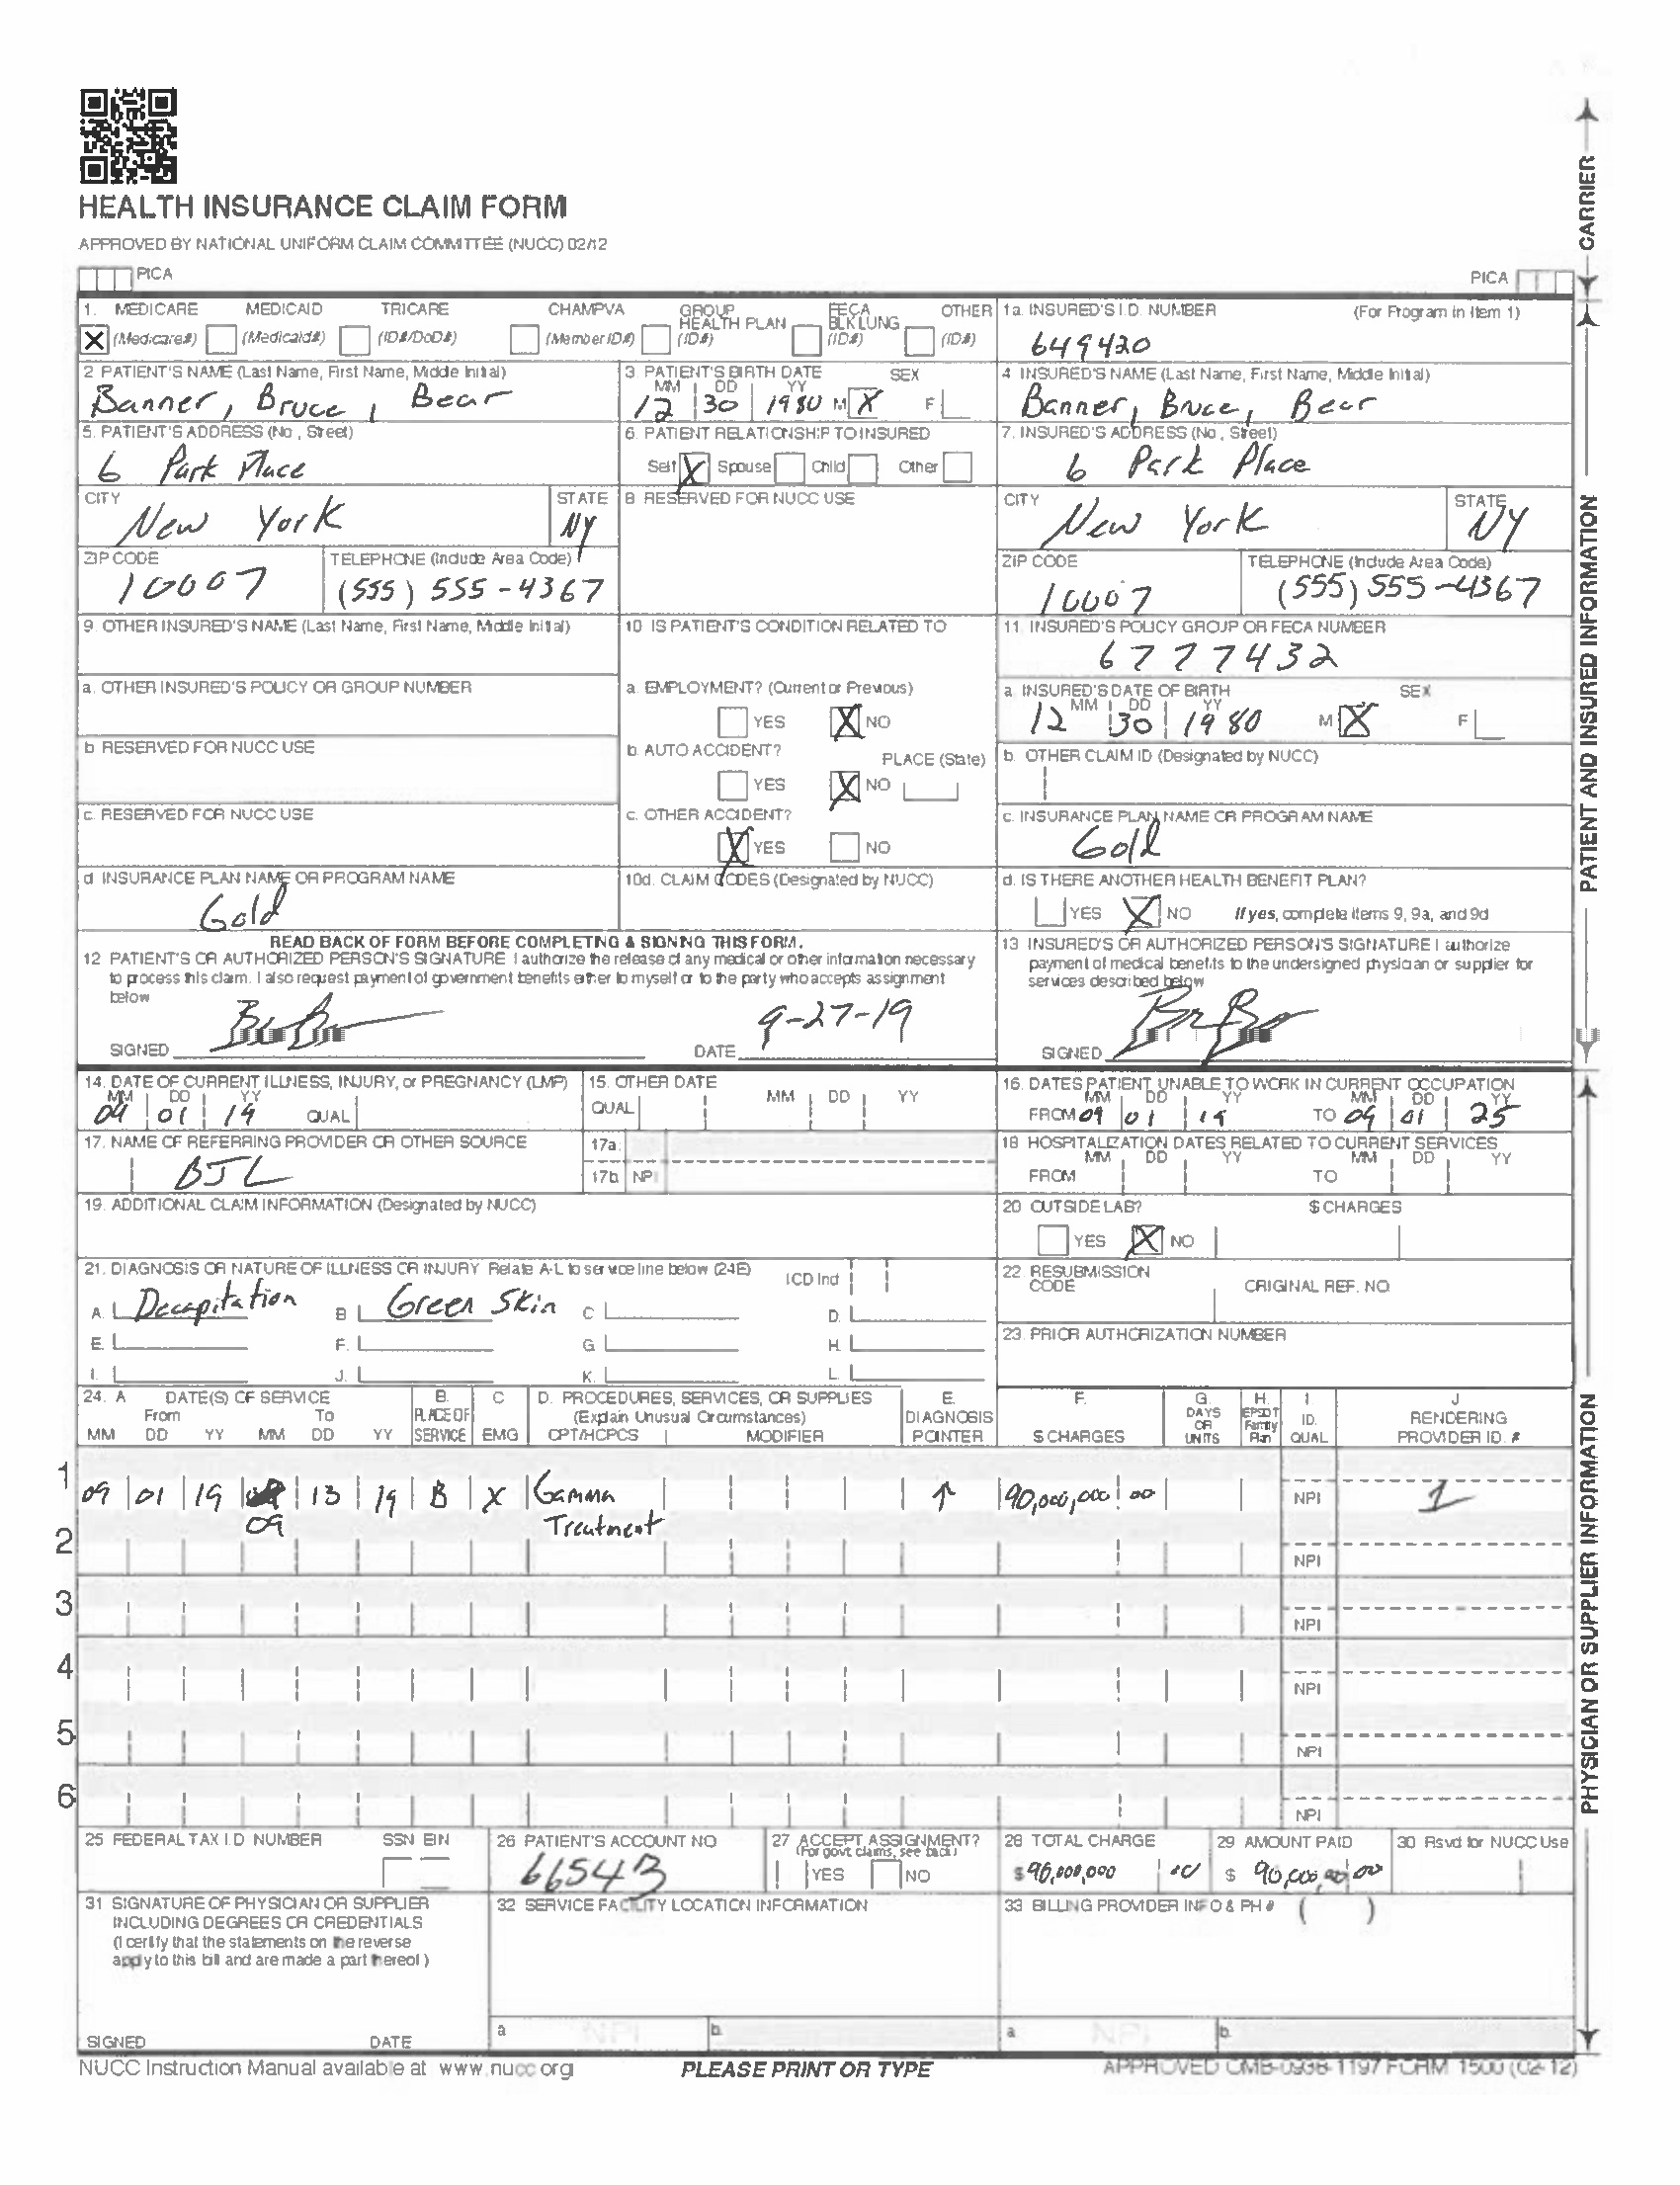 HEALTH INSURANCE CLAIM FORM
APPROVED BY NATIONAL UNIFORM CLAIM COMMITTEE (NUCC) 02/12
PICA
PICA
CARRIER
1. MEDICARE MEDICAID TRICARE CHAMPVA GROUP HEALTH PLAN FECA BLK LUNG OTHER
X (Medicare#) (Medicaid#) (ID#/DoD#) (Member ID#) (ID#) (ID#) (ID#)
1a. INSURED'S I.D. NUMBER (For Program in Item 1)
649420
2. PATIENT'S NAME (Last Name, First Name, Middle Initial)
Banner, Bruce, Bear
3. PATIENT'S BIRTH DATE SEX
MM DD YY
12 30 1980 M X F
4. INSURED'S NAME (Last Name, First Name, Middle Initial)
Banner, Bruce, Bear
5. PATIENT'S ADDRESS (No., Street)
6 Park Place
6. PATIENT RELATIONSHIP TO INSURED
Self X Spouse Child Other
7. INSURED'S ADDRESS (No., Street)
6 Park Place
CITY STATE
New York NY
8. RESERVED FOR NUCC USE
CITY STATE
New York NY
ZIP CODE TELEPHONE (Include Area Code)
10007 (555) 555-4367
ZIP CODE TELEPHONE (Include Area Code)
10007 (555) 555-4367
9. OTHER INSURED'S NAME (Last Name, First Name, Middle Initial)
10. IS PATIENT'S CONDITION RELATED TO
11. INSURED'S POLICY GROUP OR FECA NUMBER
6777432
a. OTHER INSURED'S POLICY OR GROUP NUMBER
a. EMPLOYMENT? (Current or Previous)
YES X NO
a. INSURED'S DATE OF BIRTH SEX
MM DD YY
12 30 1980 M X F
b. RESERVED FOR NUCC USE
b. AUTO ACCIDENT? PLACE (State)
YES X NO
b. OTHER CLAIM ID (Designated by NUCC)
c. RESERVED FOR NUCC USE
c. OTHER ACCIDENT?
X YES NO
c. INSURANCE PLAN NAME OR PROGRAM NAME
Gold
d. INSURANCE PLAN NAME OR PROGRAM NAME
Gold
10d. CLAIM CODES (Designated by NUCC)
d. IS THERE ANOTHER HEALTH BENEFIT PLAN?
YES X NO If yes, complete items 9, 9a, and 9d
PATIENT AND INSURED INFORMATION
READ BACK OF FORM BEFORE COMPLETING & SIGNING THIS FORM.
12. PATIENT'S OR AUTHORIZED PERSON'S SIGNATURE I authorize the release of any medical or other information necessary
to process this claim. I also request payment of government benefits either to myself or to the party who accepts assignment
below
SIGNED DATE 9-27-19
13. INSURED'S OR AUTHORIZED PERSON'S SIGNATURE I authorize
payment of medical benefits to the undersigned physician or supplier for
services described below
SIGNED
14. DATE OF CURRENT ILLNESS, INJURY, or PREGNANCY (LMP)
MM DD YY
09 01 19 QUAL
15. OTHER DATE
QUAL MM DD YY
16. DATES PATIENT UNABLE TO WORK IN CURRENT OCCUPATION
MM DD YY MM DD YY
FROM 09 01 19 TO 09 01 25
17. NAME OF REFERRING PROVIDER OR OTHER SOURCE
BJL
17a.
17b. NPI
18. HOSPITALIZATION DATES RELATED TO CURRENT SERVICES
MM DD YY MM DD YY
FROM TO
19. ADDITIONAL CLAIM INFORMATION (Designated by NUCC)
20. OUTSIDE LAB? $ CHARGES
YES X NO
21. DIAGNOSIS OR NATURE OF ILLNESS OR INJURY Relate A-L to service line below (24E) ICD Ind
A. Decapitation B. Green Skin C. D.
E. F. G. H.
I. J. K. L.
22. RESUBMISSION CODE ORIGINAL REF. NO.
23. PRIOR AUTHORIZATION NUMBER
24. A DATE(S) OF SERVICE B. C D. PROCEDURES, SERVICES, OR SUPPLIES E. F. G. H. I. J
From To PLACE OF (Explain Unusual Circumstances) DIAGNOSIS DAYS OR EPSDT Family ID. RENDERING
MM DD YY MM DD YY SERVICE EMG CPT/HCPCS MODIFIER POINTER $ CHARGES UNITS Plan QUAL PROVIDER ID. #
1
09 01 19 13 19 B X Gamma ↑ 90,000,000 00 NPI 1
09 Treatment
2
NPI
3
NPI
4
NPI
5
NPI
6
NPI
PHYSICIAN OR SUPPLIER INFORMATION
25. FEDERAL TAX I.D. NUMBER SSN EIN
26. PATIENT'S ACCOUNT NO.
66543
27. ACCEPT ASSIGNMENT?
(For govt. claims, see back)
YES NO
28. TOTAL CHARGE
$ 90,000,000
29. AMOUNT PAID
$ 90,000,000 00
30. Rsvd for NUCC Use
31. SIGNATURE OF PHYSICIAN OR SUPPLIER
INCLUDING DEGREES OR CREDENTIALS
(I certify that the statements on the reverse
apply to this bill and are made a part thereof.)
SIGNED DATE
32. SERVICE FACILITY LOCATION INFORMATION
a. NPI b.
33. BILLING PROVIDER INFO & PH # ( )
a. NPI b.
NUCC Instruction Manual available at www.nucc.org
PLEASE PRINT OR TYPE
APPROVED OMB-0938-1197 FORM 1500 (02-12)